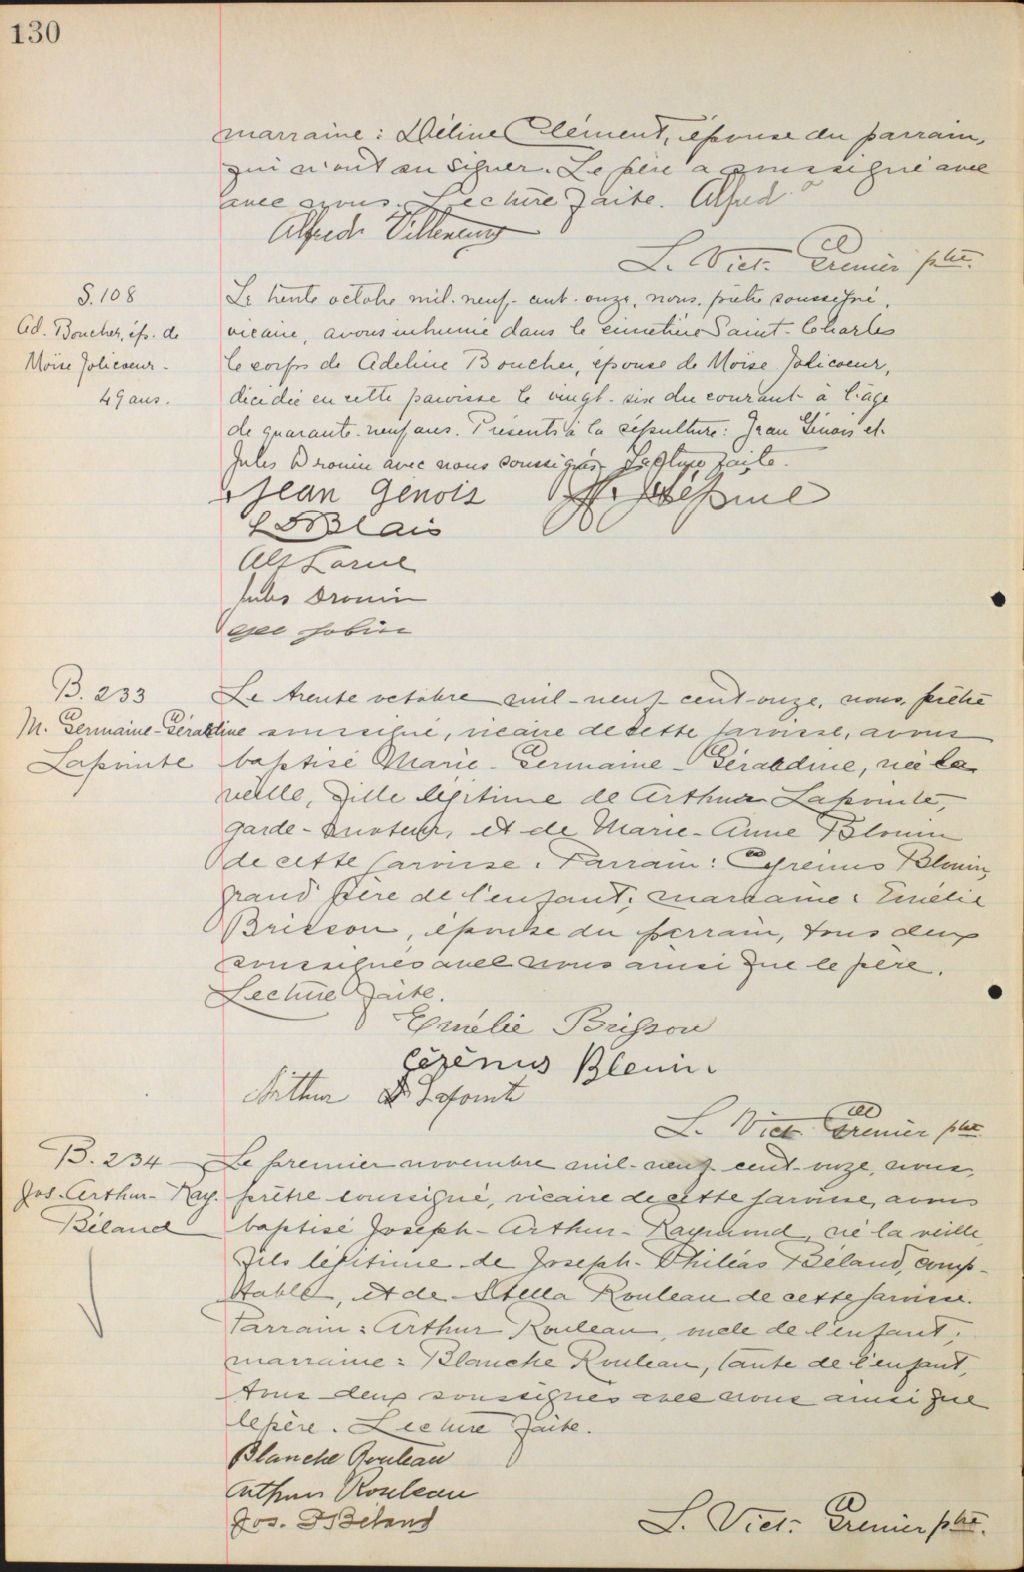 130
marraine : Déline Clément, épouse du parrain,
qui n'ont su signer. Le père a soussigné avec
avec nous. Lecture faite. Alfred
Alfred Villeneuve
L. Vict. Grenier ptre.
S. 108
Ad. Boucher, ép. de
Moïse Jolicoeur.
49 ans.
Le trente octobre mil-neuf-cent-onze, nous, prêtre soussigné,
vicaire, avons inhumé dans le cimetière Saint-Charles
le corps de Adeline Boucher, épouse de Moïse Jolicoeur,
décédée en cette paroisse le vingt-six du courant à l'âge
de quarante-neuf ans. Présents à la sépulture: Jean Génois et
Jules Drouin avec nous soussignés. Lecture faite.
Jean Génois
Lépine
Blais
Alf Larue
Jules Drouin
Jobin
B. 233
M. Germaine-Géraldine
Lapointe
Le trente octobre mil-neuf-cent-onze, nous, prêtre
soussigné, vicaire de cette paroisse, avons
baptisé Marie-Germaine-Géraldine, née la
veille, fille légitime de Arthur Lapointe,
garde-moteur, et de Marie-Anne Blouin
de cette paroisse. Parrain : Cyrénus Blouin,
grand père de l'enfant; marraine : Emélie
Brisson, épouse du parrain, tous deux
soussignés avec nous ainsi que le père.
Lecture faite.
Emélie Brisson
Cérénus Blouin
Arthur Lapointe
L. Vict. Grenier ptre.
B. 234
Jos.-Arthur-Ray.
Béland
Le premier novembre mil-neuf-cent-onze, nous,
prêtre soussigné, vicaire de cette paroisse, avons
baptisé Joseph-Arthur-Raymond, né la veille,
fils légitime de Joseph-Philéas Béland, comp-
table, et de Stella Rouleau de cette paroisse.
Parrain : Arthur Rouleau, oncle de l'enfant;
marraine : Blanche Rouleau, tante de l'enfant,
tous deux soussignés avec nous ainsi que
le père. Lecture faite.
Blanche Rouleau
Arthur Rouleau
Jos. P Béland
L. Vict. Grenier ptre.